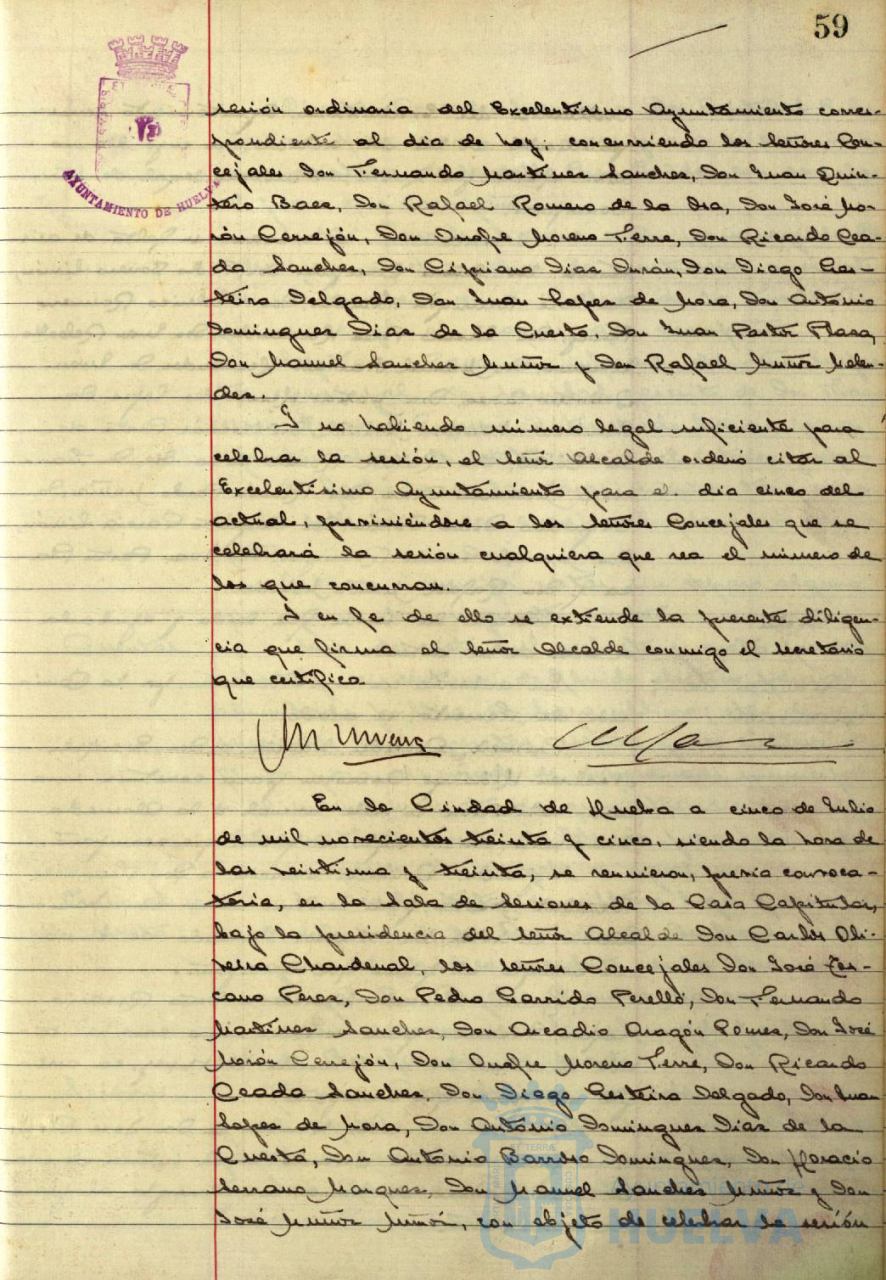 59
AYUNTAMIENTO DE HUELVA
sesión ordinaria del Excelentísimo Ayuntamiento corres-
pondiente al dia de hoy; concurriendo los señores Con-
cejales Don Fernando Martinez Sanchez, Don Juan Quin-
tero Baez, Don Rafael Romero de la Osa, Don José Mo-
rón Cerrejón, Don Onofre Moreno Terre, Don Ricardo Cea-
da Sanchez, Don Cipriano Diaz Durán, Don Diego Ges-
teira Delgado, Don Juan Lopez de Mora, Don Antonio
Dominguez Diaz de la Cuesta, Don Juan Pastor Plaza,
Don Manuel Sanchez Muñoz y Don Rafael Muñoz Melen-
dez.
Y no habiendo número legal suficiente para
celebrar la sesión, el señor Alcalde ordenó citar al
Excelentísimo Ayuntamiento para el dia cinco del
actual, previniéndose a los señores Concejales que se
celebrará la sesión cualquiera que sea el número de
los que concurran.
Y en fe de ello se extiende la presente diligen-
cia que firma el señor Alcalde conmigo el secretario
que certifica
En la Ciudad de Huelva a cinco de Julio
de mil novecientos treinta y cinco, siendo la hora de
las veintiuna y treinta, se reunieron, previa convoca-
toria, en la Sala de Sesiones de la Casa Capitular,
bajo la presidencia del señor Alcalde Don Carlos Oli-
veira Chardenal, los señores Concejales Don José Lez-
cano Perez, Don Pedro Garrido Perelló, Don Fernando
Martinez Sanchez, Don Arcadio Aragón Gomez, Don José
Morón Cerrejón, Don Onofre Moreno Terre, Don Ricardo
Ceada Sanchez, Don Diego Gesteira Delgado, Don Juan
Lopez de Mora, Don Antonio Dominguez Diaz de la
Cuesta, Don Antonio Barroso Dominguez, Don Horacio
Serrano Marquez, Don Manuel Sanchez Muñoz y Don
José Muñoz Muñoz, con objeto de celebrar la sesión
HUELVA